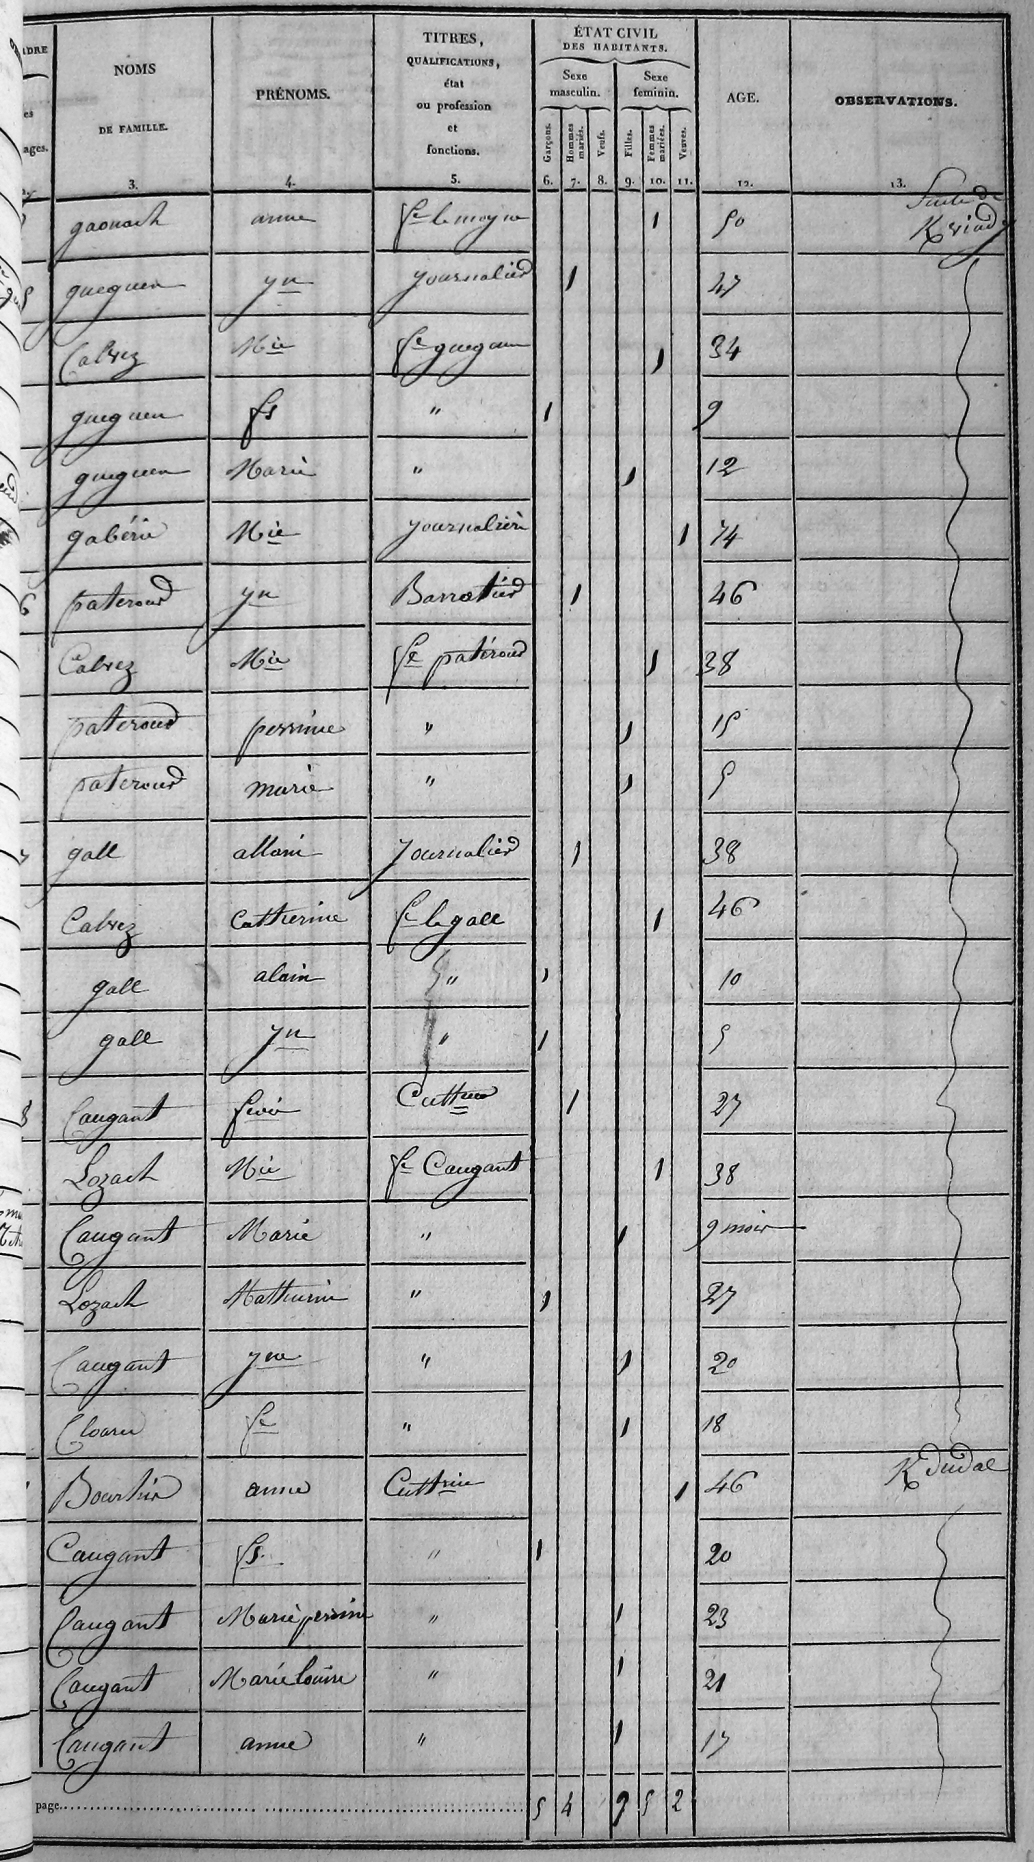 NOMS DE FAMILLE. PRÉNOMS. TITRES, QUALIFICATIONS, état ou profession et fonctions. ÉTAT CIVIL DES HABITANTS. AGE. OBSERVATIONS.
Sexe masculin. Sexe feminin.
Garçons. Hommes mariés. Veufs. Filles. Femmes mariées. Veuves.
3. 4. 5. 6. 7. 8. 9. 10. 11. 12. 13.
gaonach anne fe le moyne 1 50 Suite de
gueguen yn journalier 1 47
Calvez Mie fe gueguen 1 34
gueguen fs " 1 9
gueguen Marie " 1 12
gabérie Mie journalière 1 74
paterour yn Barratier 1 46
Calvez Mie fe patérour 1 38
paterour perrine " 1 15
paterour marie " 1 5
gall allain journalier 1 38
Calvez Catherine fe le gall 1 46
gall alain " 1 10
gall yn " 1 5
Caugant 1 27
Lozach Mie fe Caugant 1 38
Caugant Marie " 1 9 mois
Lozach Mathurin " 1 27
Caugant yne " 1 20
Cloarec fe " 1 18
Bourhis anne Cultrice 1 46 K dudal
Caugant fs " 1 20
Caugant Marie perrine " 1 23
Caugant Marie louise " 1 21
Caugant anne " 1 17
page. 5 4 9 5 2